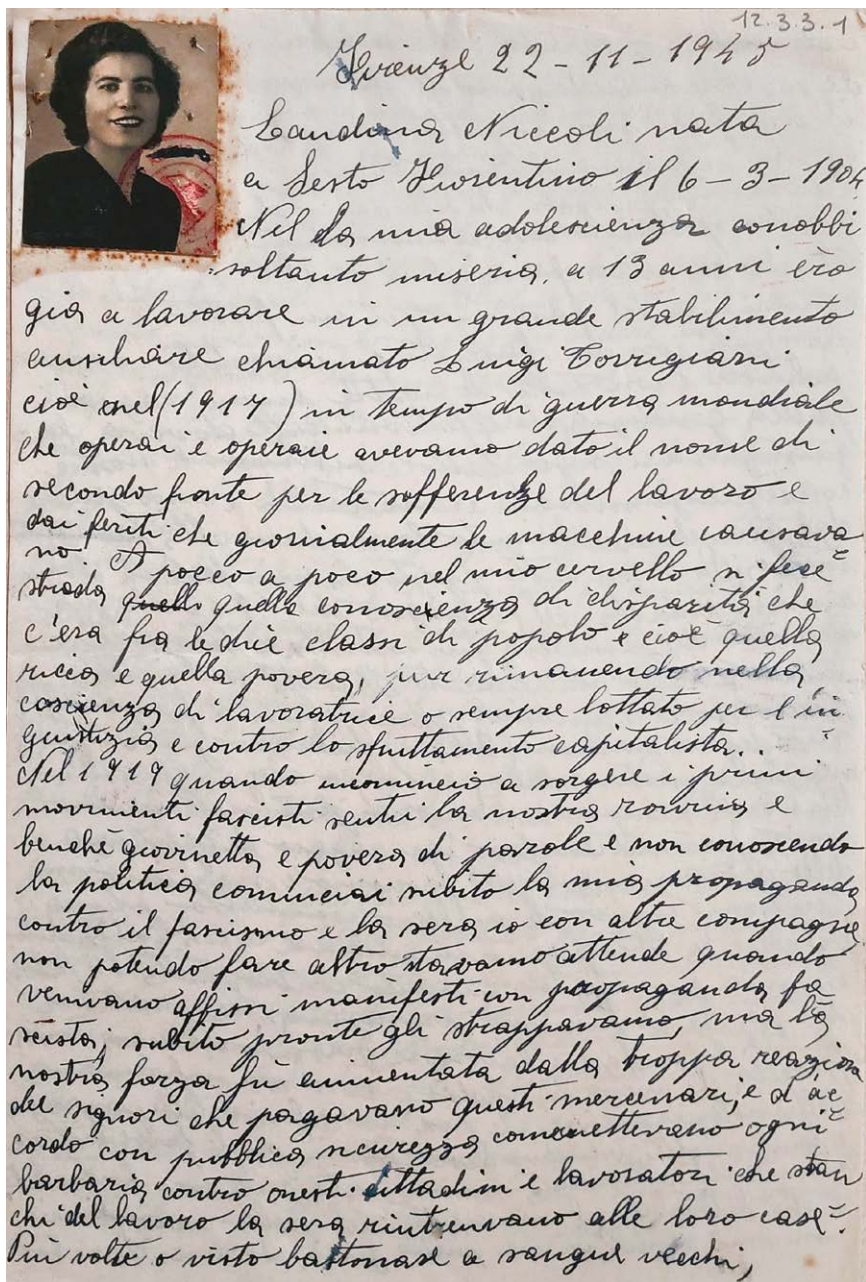 12.3.3.1
Firenze 22-11-1945
Landina Niccoli nata
a Sesto Fiorentino il 6-3-1904
Nel la mia adolescienza conobbi
soltanto miseria, a 13 anni èro
già a lavorare in un grande stabilimento
ausiliare chiamato Luigi Torrigiani
cioè nel (1917) in tempo di guerra mondiale
che operai e operaie avevamo dato il nome di
secondo fronte per le sofferenze del lavoro e
dai feriti che giornialmente le macchine causava
no A pocco a poco nel mio cervello si fece
strada quella conoscienza di disparità che
c'era fra le due classi di popolo e cioè quella
ricca e quella povera, pur rimanendo nella
coscienza di lavoratrice o sempre lottato per l'in
giustizia e contro lo sfruttamento capitalista..
Nel 1919 quando incominciò a sorgere i primi
movimenti fascisti sentii la nostra rovina e
benché giovinetta e povera di parole e non conoscendo
la politica cominciai subito la mia propaganda
contro il fascismo e la sera io con altre compagne
non potendo fare altro stavamo attende quando
venivano affissi manifesti con propaganda fa
scista; subito pronte gli strappavamo, ma la
nostra forza fù annientata dalla troppa reazione
dei signori che pagavano questi mercenari, e d'ac
cordo con pubblica sicurezza commettevano ogni
barbaria contro onesti cittadini e lavoratori che stan
chi del lavoro la sera rintrenvano alle loro case.
Più volte o visto bastonare a sangue vecchi,